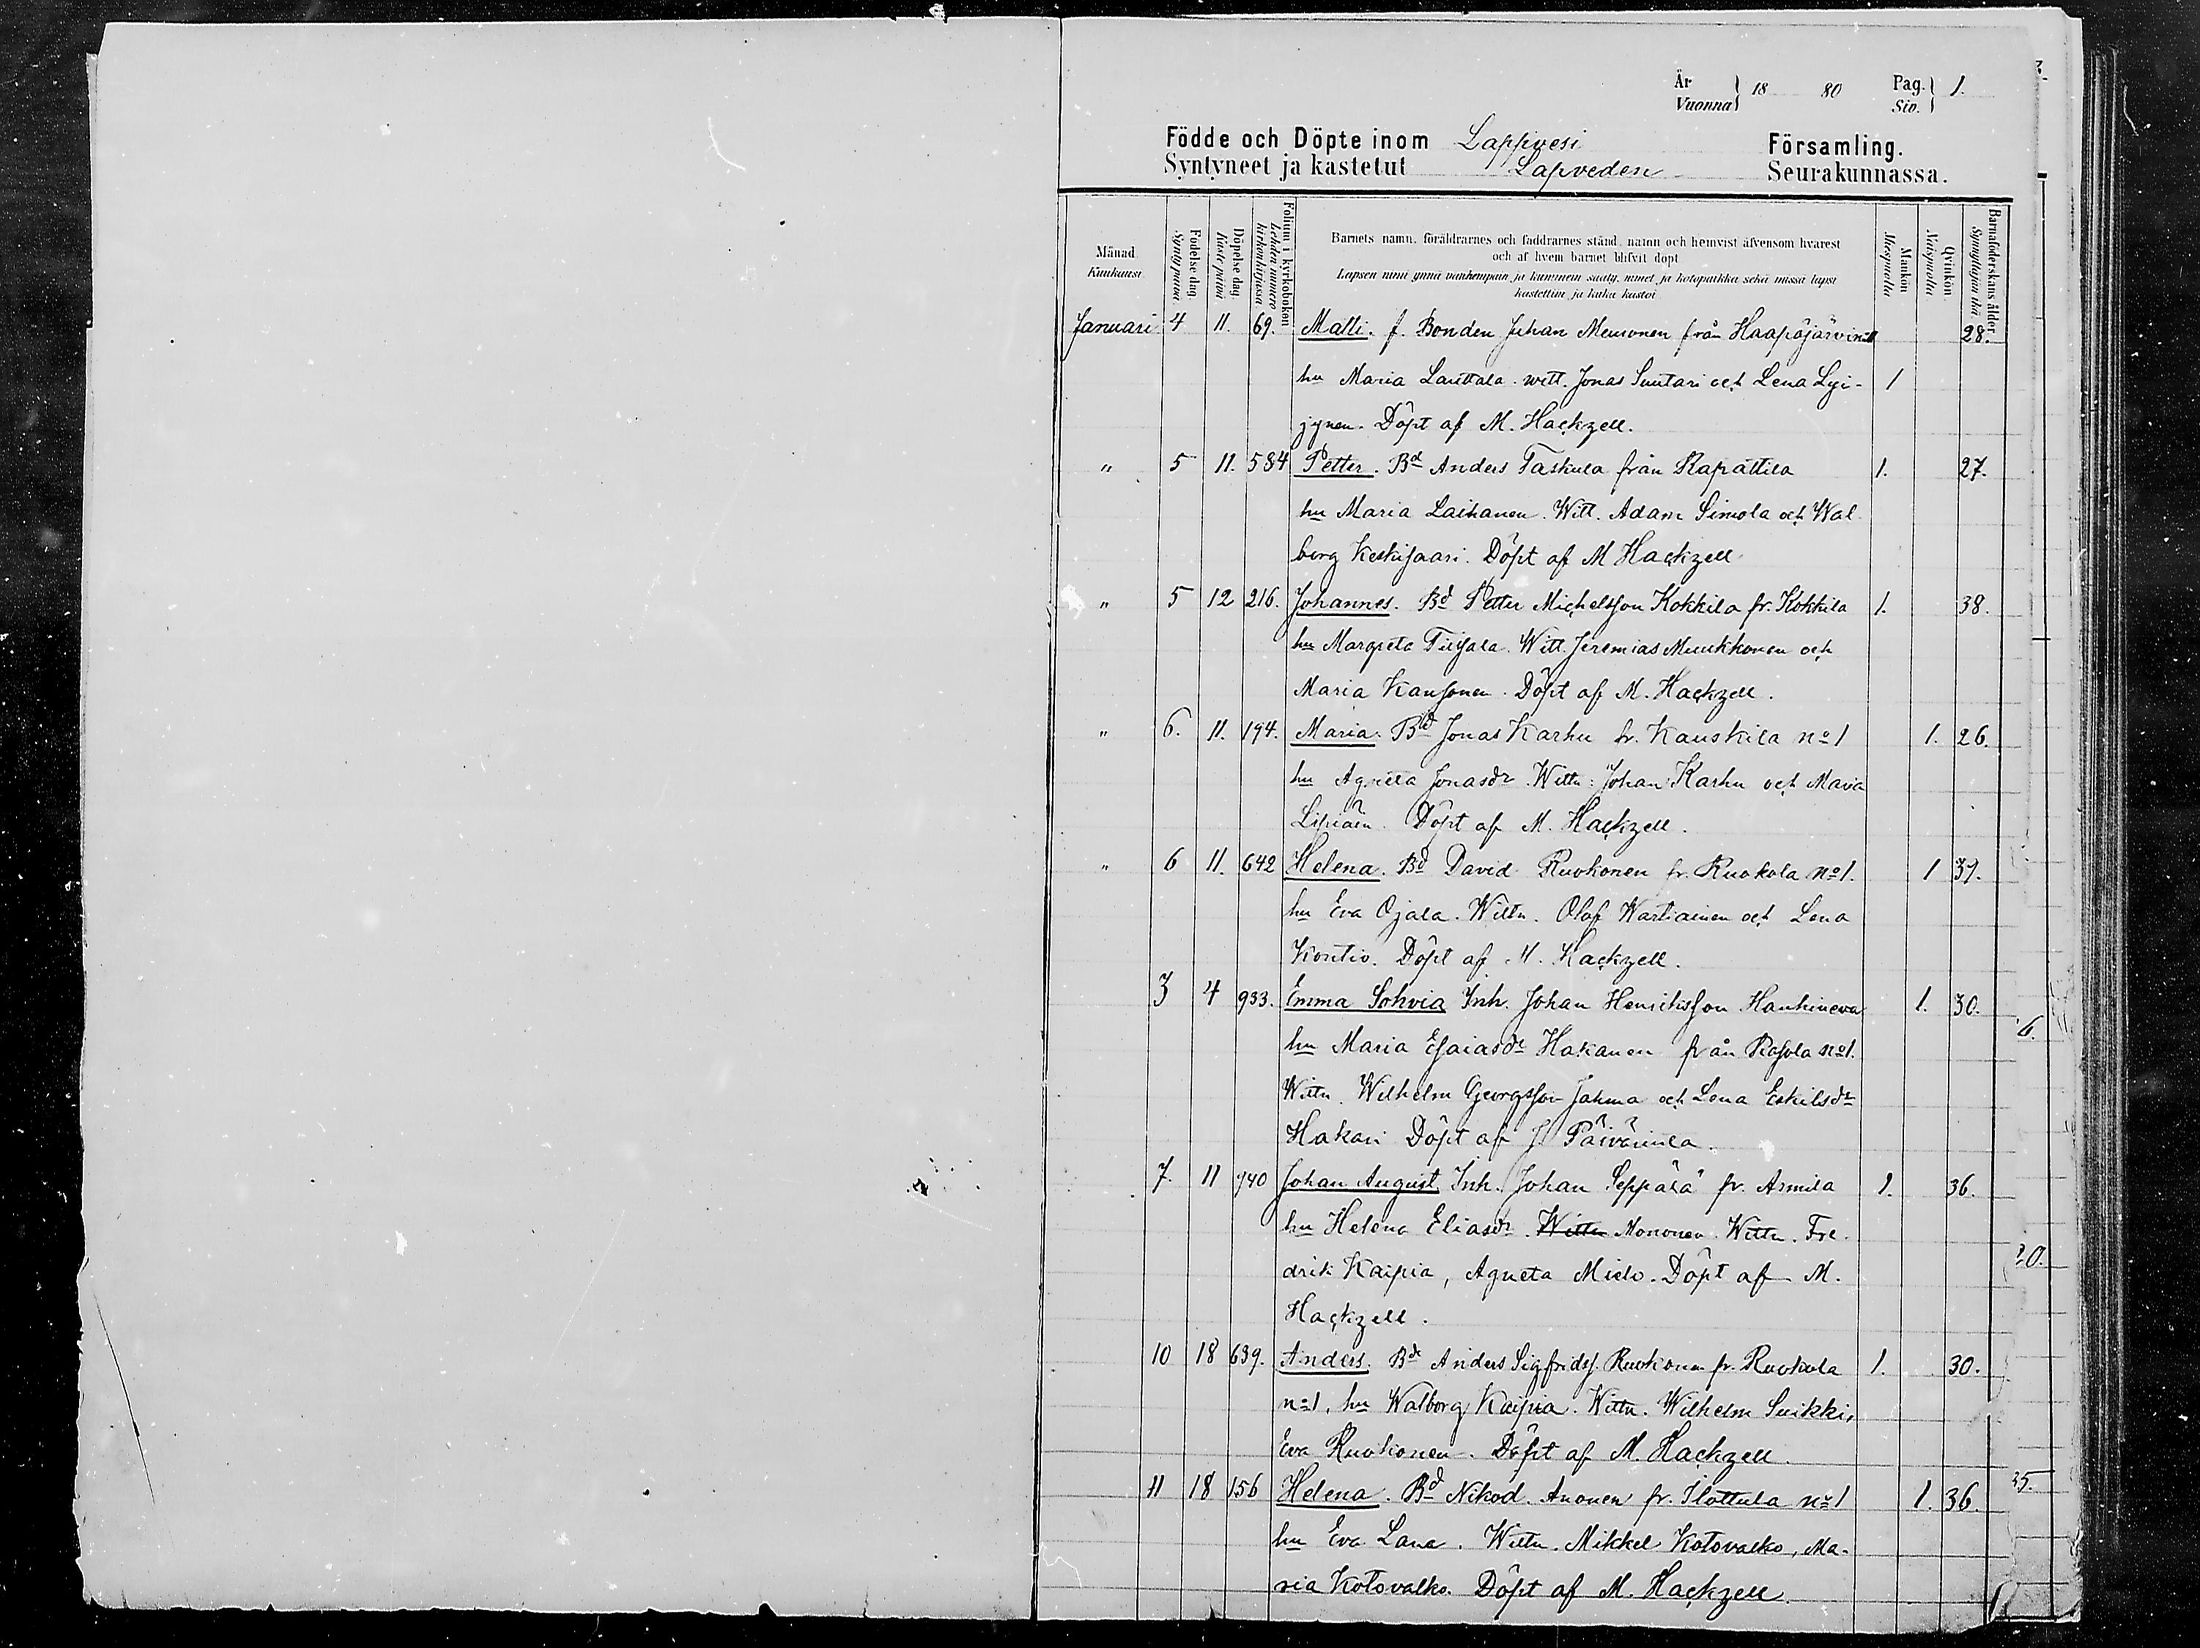 År
Vuonna } 18 80 Pag. Siv. } 1.
Födde och Döpte inom Lappvesi Församling.
Syntyneet ja kastetut Lapveden Seurakunnassa.
Månad Kuukausi
Födelse dag. Syntymä päivä
Döpelse dag. Kaste päivä
Folium i kyrkoboken Lehden numero kirkonkirjassa
Barnets namn, föräldrarnes och faddrarnes stånd, namn och hemvist äfvensom hvarest
och af hvem barnet blifvit döpt
Lapsen nimi ynnä vanhempain ja kummein sääty, nimet ja kotopaikka sekä missä lapsi
kastettiin ja kuka kastoi
Mankön Miespuolia
Qvinkön Naispuolia
Barnaföderskans ålder. Synnyttäjän ikä
Januari 4 11. 69. Matti. f. Bonden Juhan Meuronen från Haapajärvi 28.
hu Maria Lauttala. witt. Jonas Suutari och Lena Lyi- 1
jynen. Döpt af M. Hackzell.
" 5 11. 584 Petter. Bd Anders Taskula från Rapattila 1. 27.
hu Maria Laihanen. Witt. Adam Simola och Wal
borg Keskisaari. Döpt af M Hackzell
" 5 12 216. Johannes. Bd Petter Michelsson Kokkila fr. Kokkila 1. 38.
hu Margreta Tiisala. Witt. Jeremias Muukkonen och
Maria Kansonen. Döpt af M. Hackzell.
" 6. 11. 194. Maria. Bd Jonas Karhu fr. Kauskila no 1 1. 26.
hu Agneta Jonasdr. Wittn: Johan Karhu och Maria
Lipiäin. Döpt af M. Hackzell.
" 6 11. 642 Helena. Bd David Ruokonen fr. Ruokola no 1. 1 37.
hu Eva Ojala. Wittn. Olof Wartiainen och Lena
Kontio. Döpt af M. Hackzell.
3 4 933. Emma Sohvia Inh. Johan Henriksson Hankineva 1. 30.
hu Maria Esaiasdr Hakanen från Rasola no 1.
Wittn. Wilhelm Georgsson Jahma och Lena Eskilsdr
Hakari Döpt af J Päivärinta.
7. 11 940 Johan August. Inh. Johan Seppälä fr. Armila 1. 36.
hu Helena Eliasdr. Wittn Mononen. Wittn. Fre-
drik Kaipia, Agneta Mielo. Döpt af M.
Hackzell.
10 18 639. Anders. Bd Anders Sigfridss. Ruokonen fr. Ruokola 1. 30.
no 1, hu Walborg Kaipia. Wittn. Wilhelm Suikki,
Eva Ruokonen. Döpt af M. Hackzell.
11 18 156 Helena. Bd Nikod. Anonen fr. Ilottula no 1 1. 36.
hu Eva Lana. Wittn. Mikkel Kotovalko, Ma-
ria Kotovalko. Döpt af M. Hackzell.